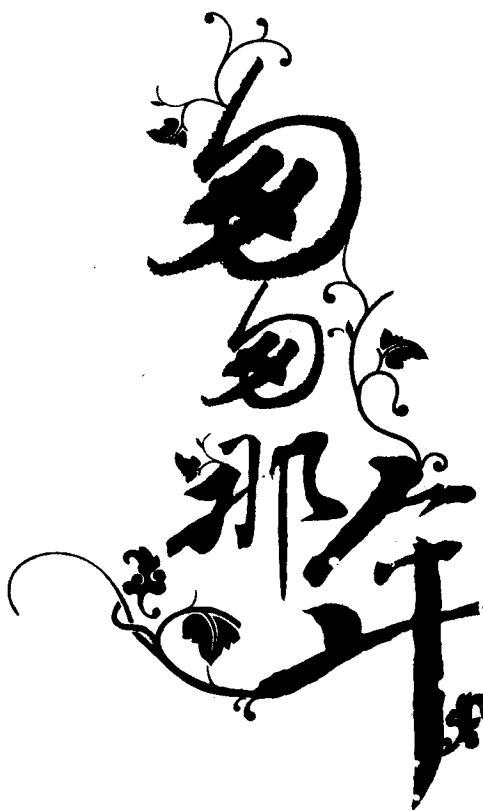 匆匆那年